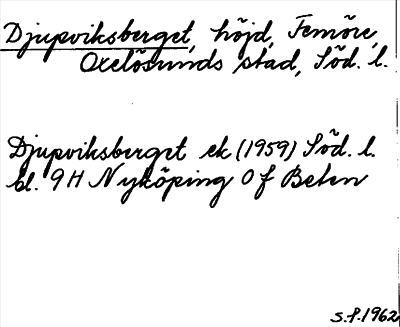 Djupviksberget, höjd, Femöre,
Oxelösunds stad, Söd. l.
Djupviksberget ek (1959) Söd. l.
bl. 9 H Nyköping 0 f Beten
S.f. 1962